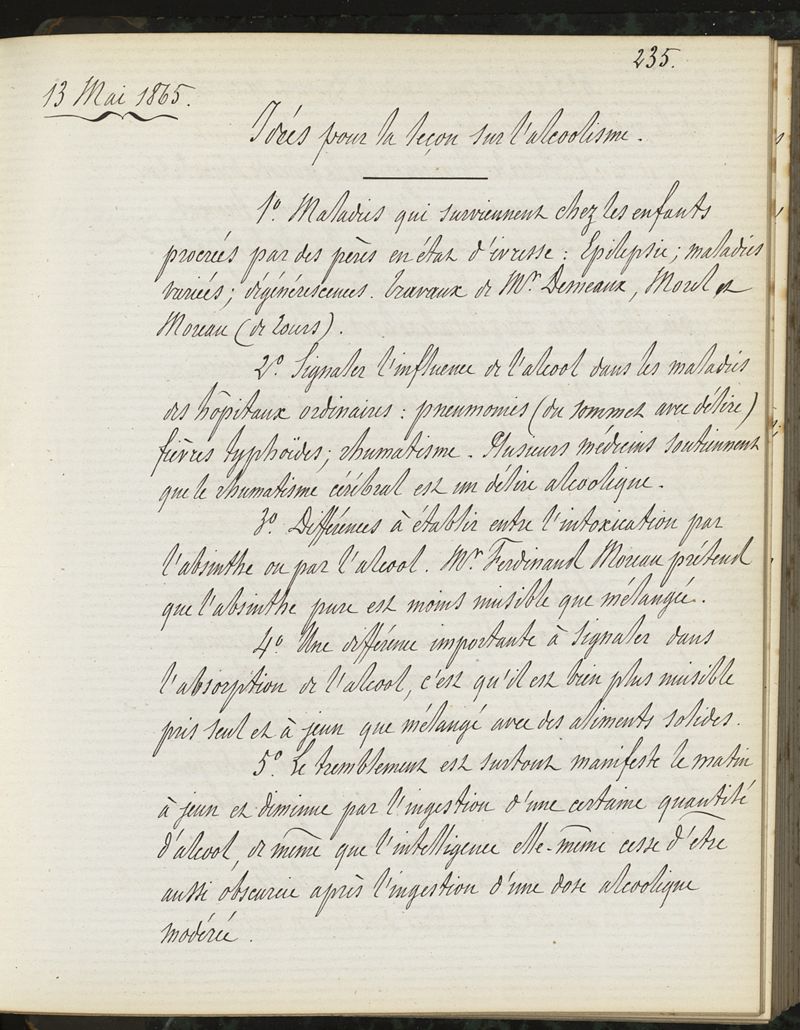 235.
13 Mai 1865.
Idées pour la leçon sur l'alcoolisme.
1º. Maladies qui surviennent chez les enfants
procréés par des pères en état d'ivresse : Epilepsie ; maladies
variées ; dégénérescences. Travaux de Mr. Demeaux, Morel et
Moreau (de Tours).
2º. Signaler l'influence de l'alcool dans les maladies
des hôpitaux ordinaires : pneumonies (du sommet avec délire)
fièvres typhoïdes ; rhumatisme. Plusieurs médecins soutiennent
que le rhumatisme cérébral est un délire alcoolique.
3º. Différences à établir entre l'intoxication par
l'absinthe ou par l'alcool. Mr. Ferdinand Moreau prétend
que l'absinthe pure est moins nuisible que mélangée.
4º. Une différence importante à signaler dans
l'absorption de l'alcool, c'est qu'il est bien plus nuisible
pris seul et à jeun que mélangé avec des aliments solides.
5º. Le tremblement est surtout manifeste le matin
à jeun et diminue par l'ingestion d'une certaine quantité
d'alcool, de même que l'intelligence elle-même cesse d'être
aussi obscurcie après l'ingestion d'une dose alcoolique
modérée.